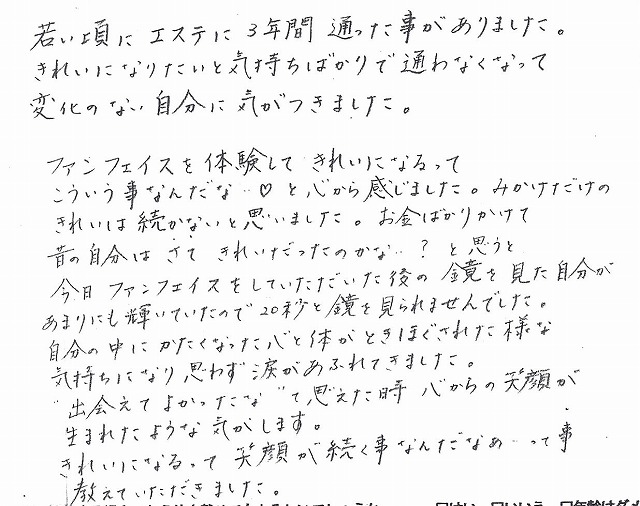 若い頃に エステに 3年間 通った事がありました。
きれいになりたいと気持ちばかりで通わなくなって
変化のない自分に気がつきました。
ファンフェイスを体験して きれいになるって
こういう事なんだな…♡ と心から感じました。みかけだけの
きれいは続かないと思いました。お金ばかりかけて
昔の自分は さて きれいだったのかな…? と思うと
今日 ファンフェイスをしていただいた後の 鏡を見た自分が
あまりにも輝いていたので20秒と鏡を見られませんでした。
自分の中に かたくなった心と体がときほぐされた様な
気持ちになり思わず涙があふれてきました。
"出会えて よかったな"って思えた時 心からの笑顔が
生まれたような気がします。
きれいになるって 笑顔が続く事なんだなぁ…って事
教えていただきました。